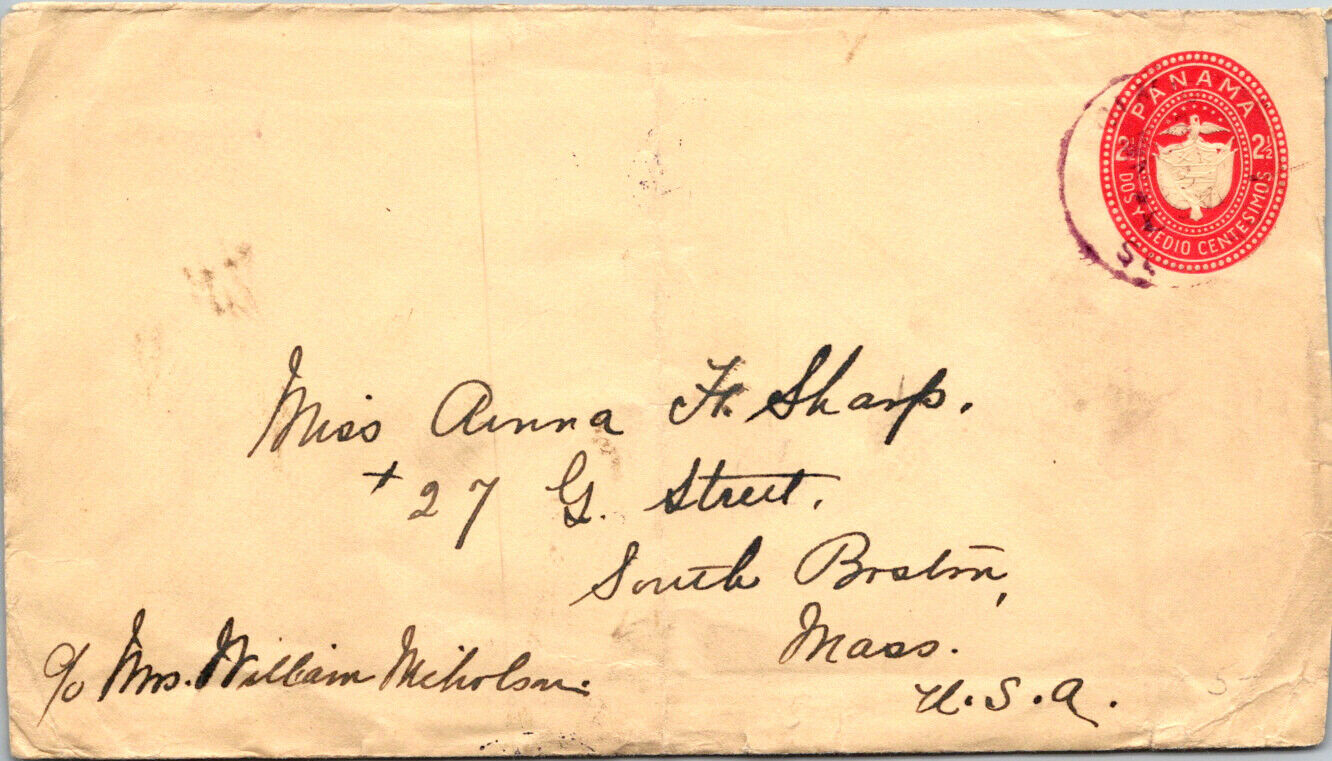 PANAMA
2½ 2½
DOS Y MEDIO CENTESIMOS
Miss Anna H. Sharp.
+ 27 G. Street.
South Boston,
Mass.
U.S.A.
c/o Mrs. William Nicholson.